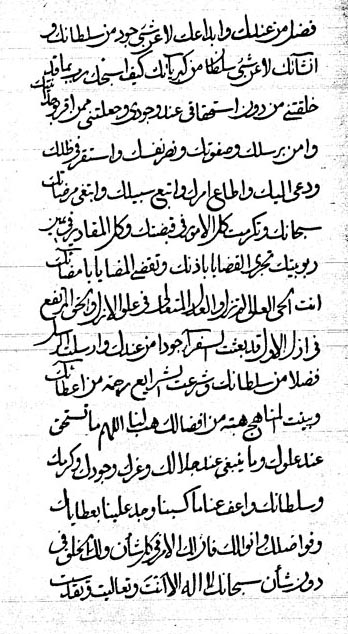 فضلا من عندك وابداعك لا عن شئ جود من سلطانك و
انشائك لا عن شئ سلطانا من كبريائك كيف اسبحك يا رب بما قد
خلقتنى من دون استحقاقى عند وجودى وجعلتنى ممن اقر بوحدانيتك
وامن برسلك وصفوتك وتصرفك واستقر فى ظلك
ودعى اليك واطاع امرك واتبع سبيلك وابتغى مرضاتك
سبحانك وتكرمت كل الامر فى قبضتك وكل المقادير فى يمين
ربوبيتك تجرى القضايا باذنك وتقضى المضايا بامضائك
انت الحى العدل المنزل والعدل المتعال فى علو الازل والحق المرتفع
فى ازل الاول قد بعثت السفراء جودا من عندك وارسلت الرسل
فضلا من سلطانك وشرعت الشرايع رحمة من اعطائك
وبينت المناهج هبة من افضالك هب لنا اللهم ما تستحق
عند علوك وما ينبغى عند جلالك وعزك وجودك وكرمك
وسلطانك واعف عنا ما كسبنا وجد علينا بعطاياك
وفواضلك ونوالك فان لك الامر فى كل شأن ولك الخلق فى
دون شأن سبحانك لا اله الا انت وتعاليت وتقدست